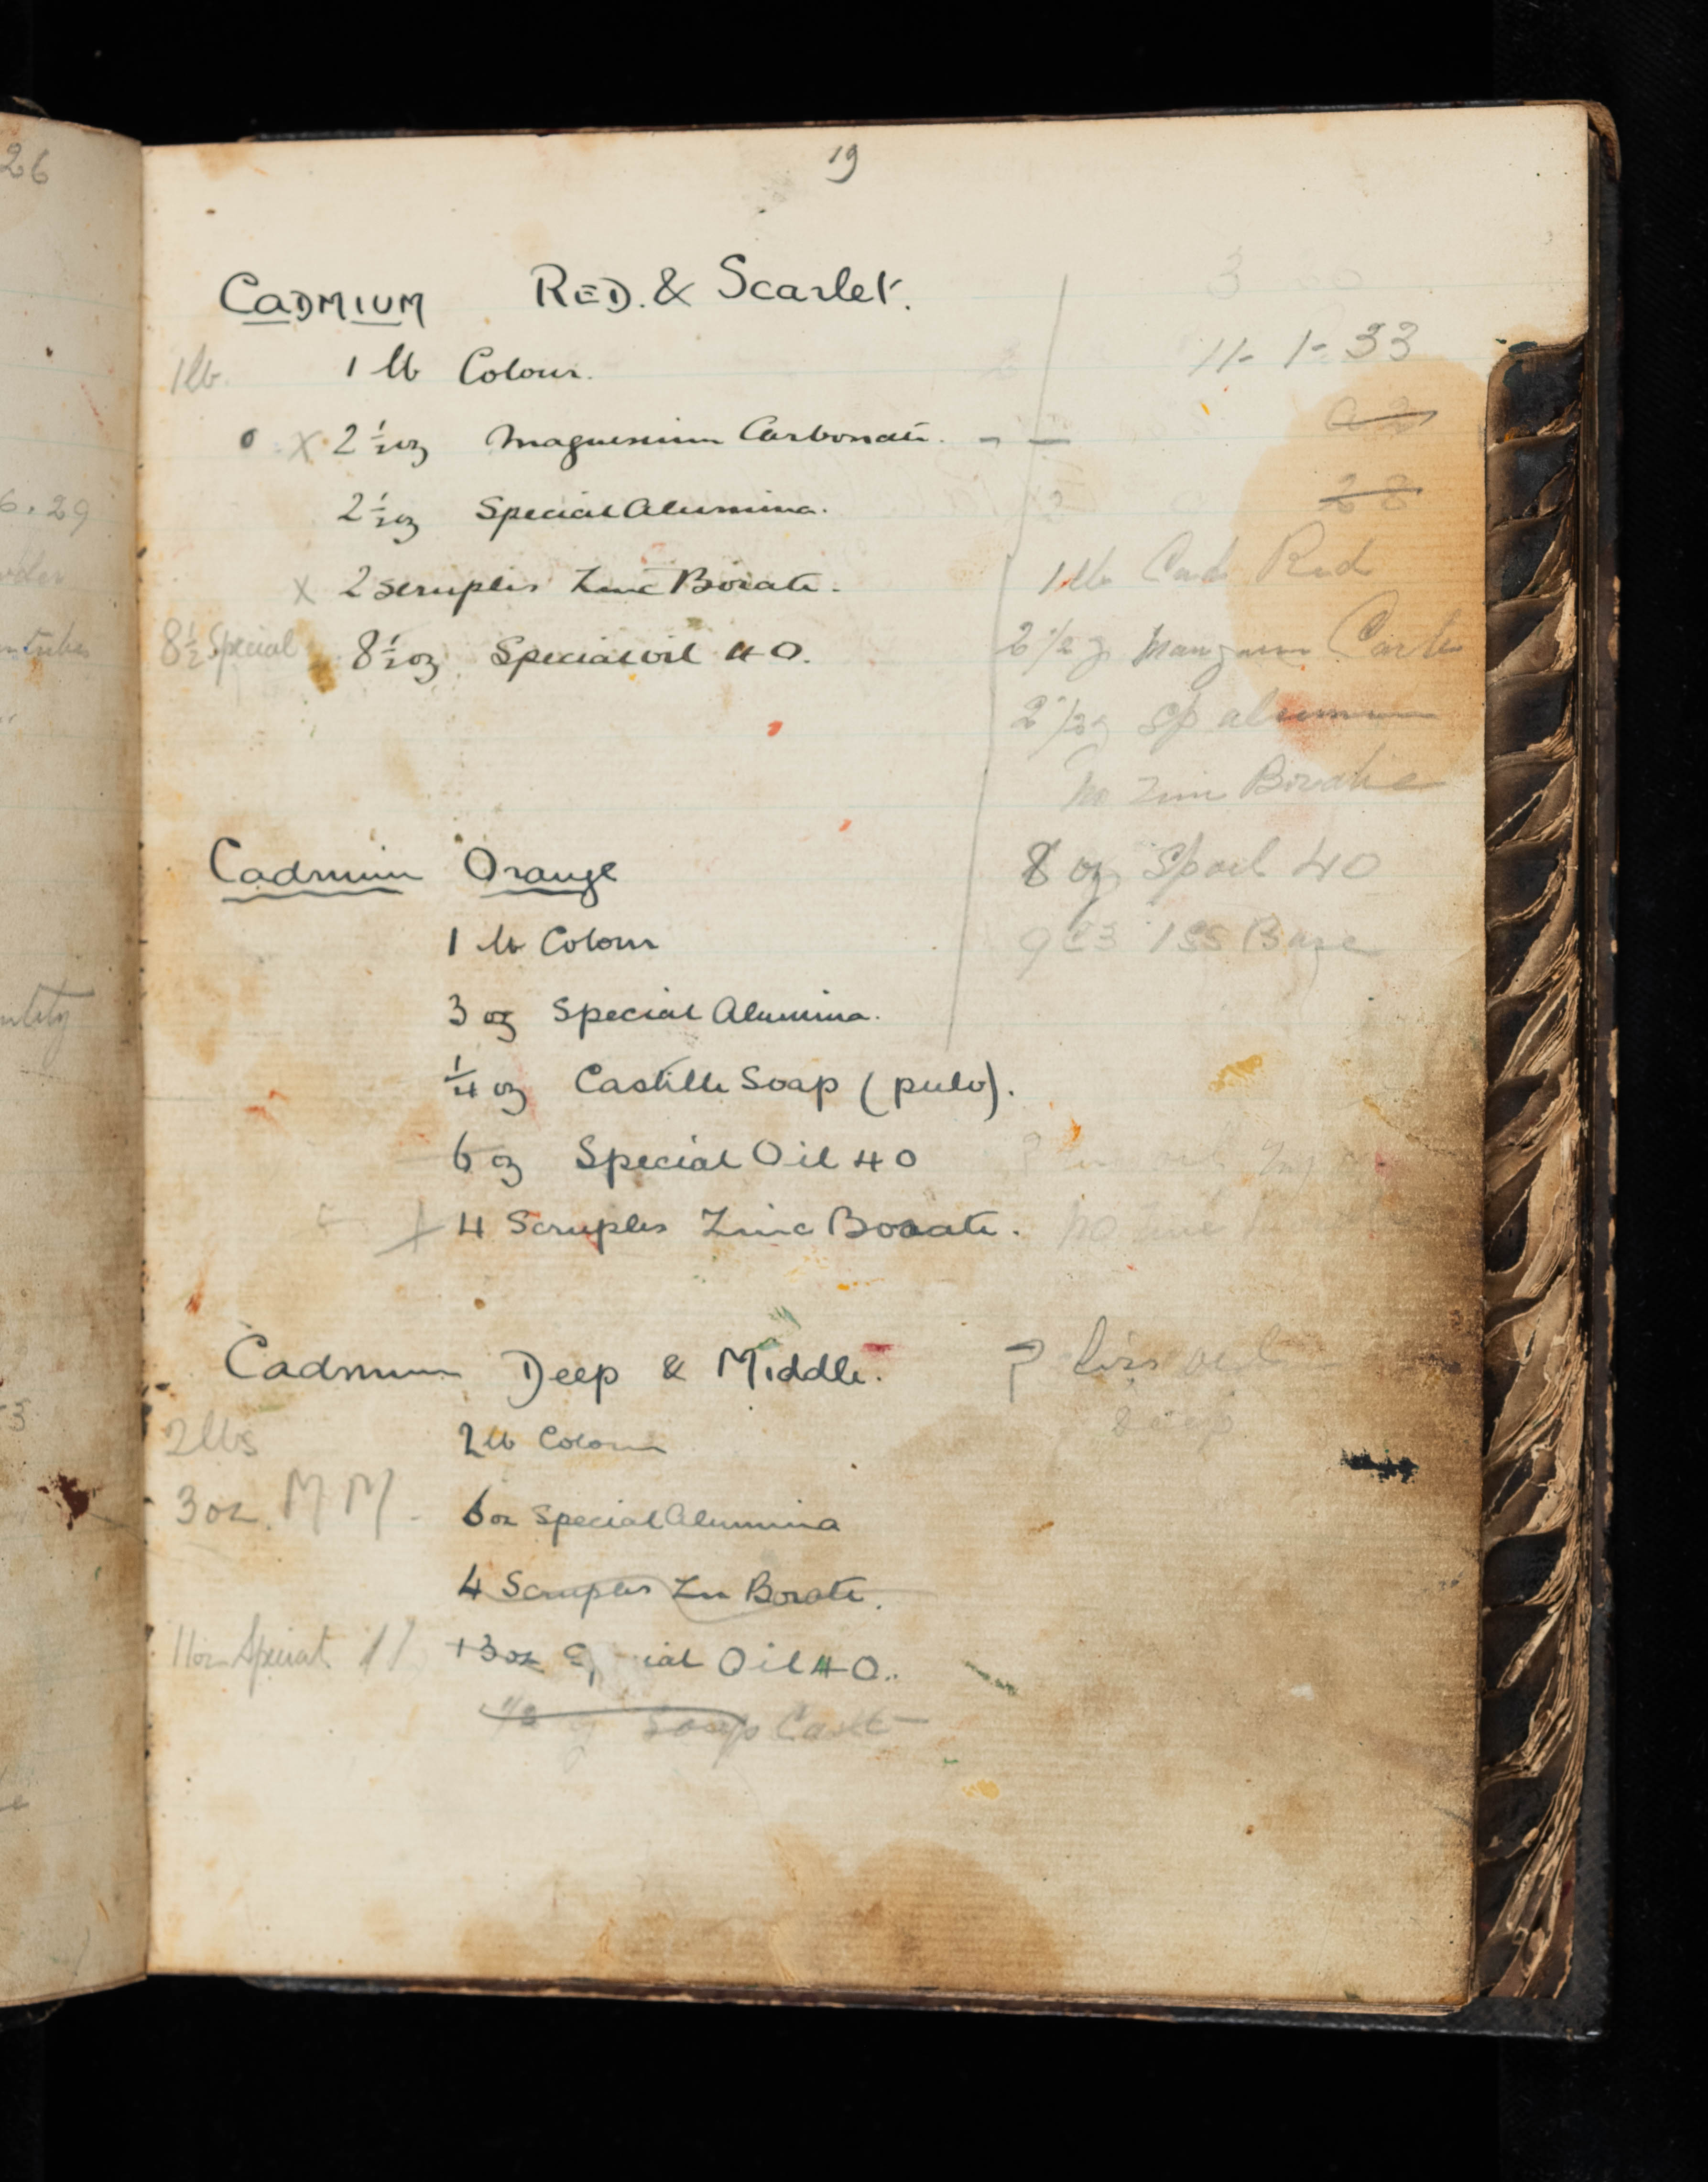 26
6.29
19
CADMIUM RED. & Scarlet.
11-1-33
1lb. 1 lb Colour.
x 2½oz Magnesium Carbonate. - -
2½oz Special Alumina.
28
x 2 scruples Zinc Borate.
1 lb Cad Red
8½ Special 8½oz. Special oil 40.
2 1/2 oz Carb
2 1/2 oz Sp alumina
no Zinc Borate
Cadmium Orange
8 oz Sp oil 40
1 lb Colour
3 oz Special Alumina.
¼ oz Castille Soap (pulv).
6 oz Special Oil 40
4 Scruples Zinc Borate. no Zinc
Cadmium Deep & Middle. ? less oil
2lbs 2lb Colour
3oz. MM. 6oz Special Alumina
4 Scruples Zn Borate.
11oz Special 11 13oz Special Oil 40.
Soap Cast